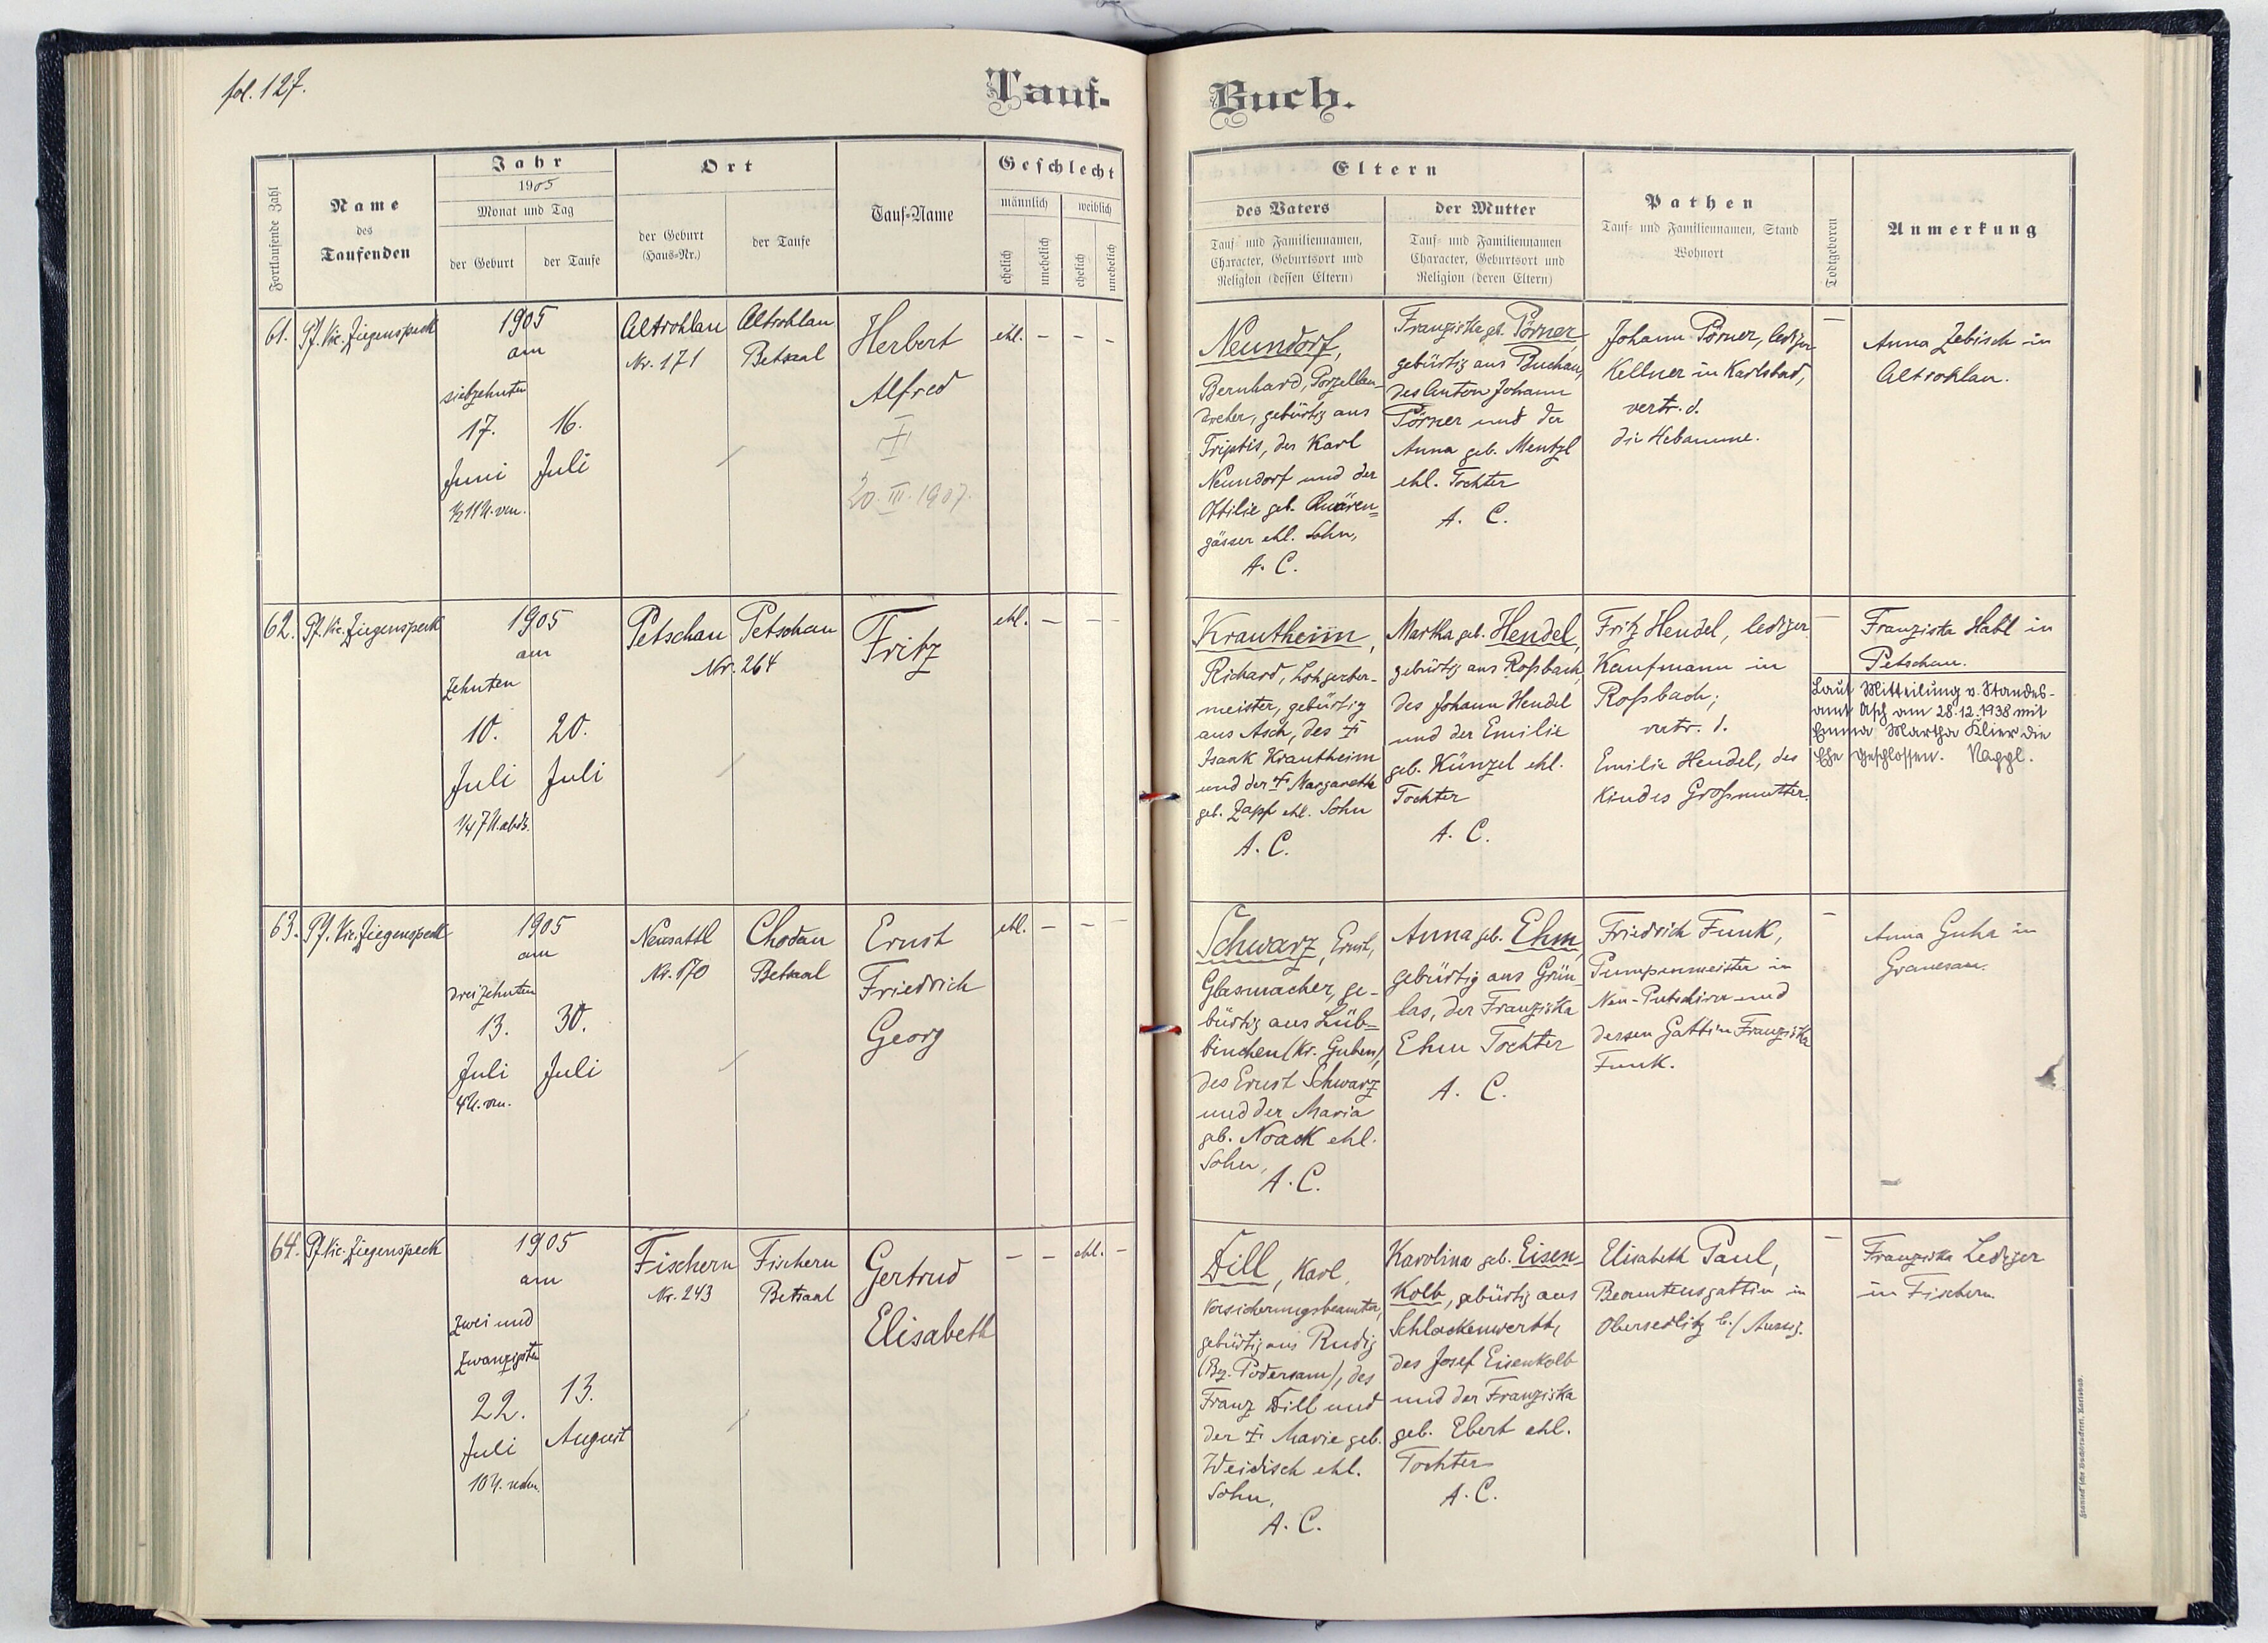 fol. 127.
Tauf-
Buch.
Fortlaufende Zahl
Name
des
Taufenden
Jahr
1905
Monat und Tag
der Geburt
der Taufe
Ort
der Geburt
(Haus-Nr.)
der Taufe
Tauf-Name
Geschlecht
männlich
weiblich
ehelich
unehelich
ehelich
unehelich
Eltern
des Vaters
Tauf- und Familiennamen,
Character, Geburtsort und
Religion (dessen Eltern)
der Mutter
Tauf- und Familiennamen
Character, Geburtsort und
Religion (deren Eltern)
Pathen
Tauf- und Familiennamen, Stand
Wohnort
Todtgeboren
Anmerkung
61.
Pf. Vic. Ziegenspeck
1905
am
siebzehnten
17.
Juni
½ 11 U. vm.
16.
Juli
Altrohlau
Nr. 171
Altrohlau
Betsaal
Herbert
Alfred
20. III. 1907.
ehl. – – –
Neundorf,
Bernhard, Porzellan-
dreher, gebürtig aus
Triptis, des Karl
Neundorf und der
Ottilie geb. Quären=
gässer ehl. Sohn,
A. C.
Franziska geb. Pörner,
gebürtig aus Buchau,
des Anton Johann
Pörner und der
Anna geb. Mentzl
ehl. Tochter
A. C.
Johann Pörner, lediger
Kellner in Karlsbad,
vertr. d.
die Hebamme.
–
Anna Zebisch in
Altrohlau.
62.
Pf. Vic. Ziegenspeck
1905
am
zehnten
10.
Juli
¼ 7 U. abds.
20.
Juli
Petschau
Petschau
Nr. 264
Fritz
ehl. – – –
Krautheim,
Richard, Lohgerber-
meister, gebürtig
aus Asch, des †
Isaak Krautheim
und der † Margarethe
geb. Zapf ehl. Sohn
A. C.
Martha geb. Hendel,
gebürtig aus Roßbach,
des Johann Hendel
und der Emilie
geb. Künzel ehl.
Tochter
A. C.
Fritz Hendel, lediger
Kaufmann in
Roßbach;
vertr. d.
Emilie Hendel, des
Kindes Großmutter.
–
Franziska Habl in
Petschau.
Laut Mitteilung v. Standes-
amt Asch am 28.12.1938 mit
Emma Martha Klier die
Ehe geschlossen. Naggl.
63.
Pf. Vic. Ziegenspeck
1905
am
dreizehnten
13.
Juli
4 U. vm.
30.
Juli
Neusattl
Nr. 170
Chodau
Betsaal
Ernst
Friedrich
Georg
ehl. – – –
Schwarz, Ernst,
Glasmacher, ge-
bürtig aus Lüb=
binchen (Kr. Guben),
des Ernst Schwarz
und der Maria
geb. Noack ehl.
Sohn,
A. C.
Anna geb. Ehm,
gebürtig aus Grün-
las, der Franziska
Ehm Tochter
A. C.
Friedrich Funk,
Pumpenmeister in
Neu-Putschirn und
dessen Gattin Franziska
Funk.
–
Anna Guha in
Granesau.
64.
Pf. Vic. Ziegenspeck
1905
am
zwei und
zwanzigsten
22.
Juli
10 U. nchm.
13.
August
Fischern
Nr. 243
Fischern
Betsaal
Gertrud
Elisabeth
– – ehl. –
Dill, Karl,
Versicherungsbeamter,
gebürtig aus Rudig
(Bz. Podersam), des
Franz Dill und
der † Marie geb.
Weidisch ehl.
Sohn,
A. C.
Karolina geb. Eisen-
kolb, gebürtig aus
Schlackenwerth,
des Josef Eisenkolb
und der Franziska
geb. Ebert ehl.
Tochter
A. C.
Elisabeth Paul,
Beamtensgattin in
Obersedlitz b./Aussig.
–
Franziska Lediger
in Fischern